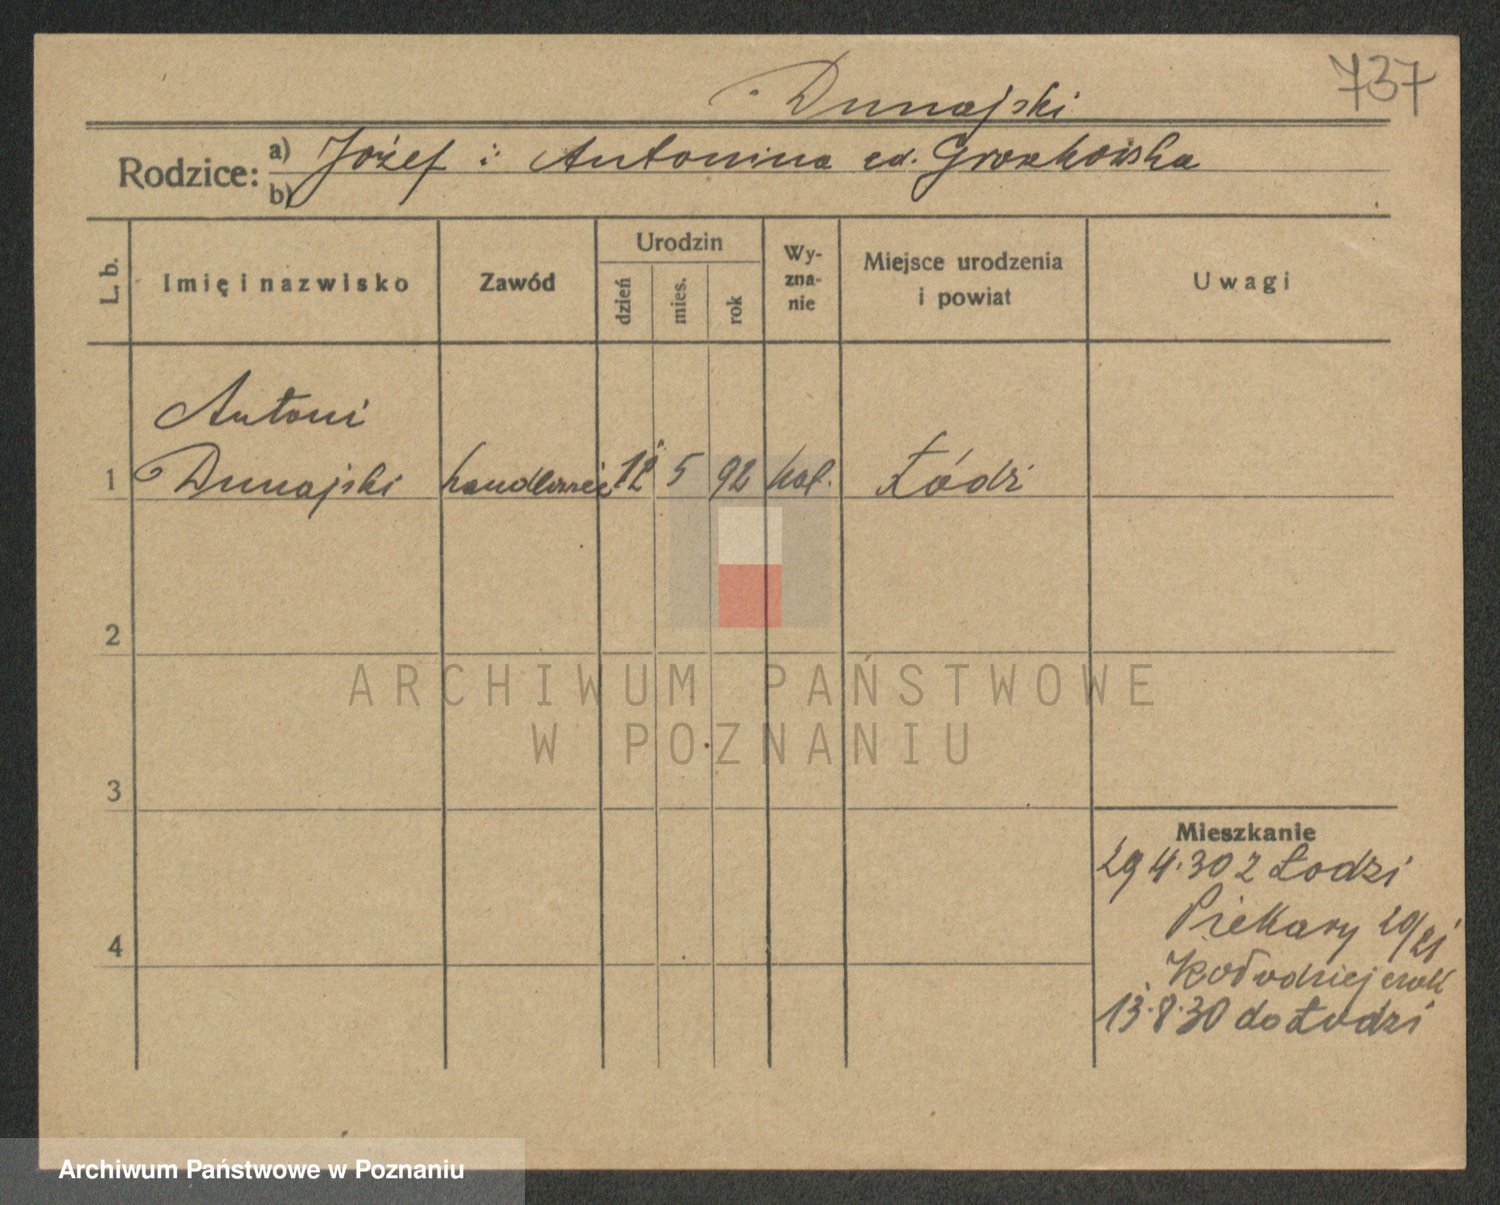 737
Dunajski
Rodzice: a) Józef i Antonina
b)
L. b.
Imię i nazwisko
Zawód
Urodzin
dzień
mies.
rok
Wy-
zna-
nie
Miejsce urodzenia
i powiat
Uwagi
Antoni
1 Dunajski handlowiec 12 5 92 kat. Łódź
2
3
4
Mieszkanie
29 4.30 z Łodzi
Piekary 20/21
13.8.30 do Łodzi
ARCHIWUM PAŃSTWOWE
W POZNANIU
Archiwum Państwowe w Poznaniu